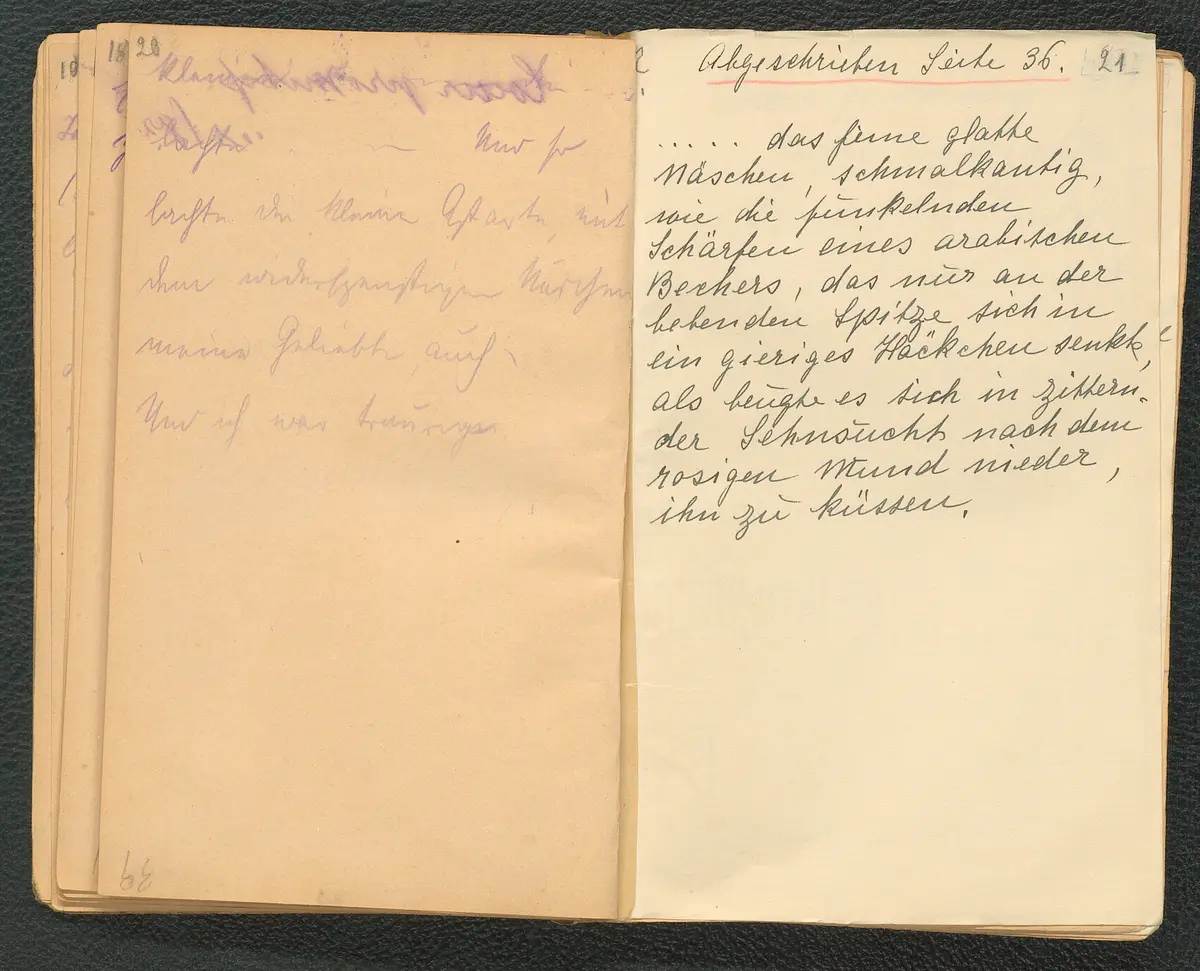 20
Und so
lachte die kleine Astarte, mit
dem widerspenstigen Näschen
meine Geliebte auch.
Und ich war traurig
39
Abgeschrieben Seite 36. 21
..... das feine glatte
Näschen, schmalkantig,
wie die funkelnden
Schärfen eines arabischen
Bechers, das nur an der
bebenden Spitze sich in
ein gieriges Häckchen senkt,
als beugte es sich in zittern-
der Sehnsucht nach dem
rosigen Mund nieder,
ihn zu küssen.